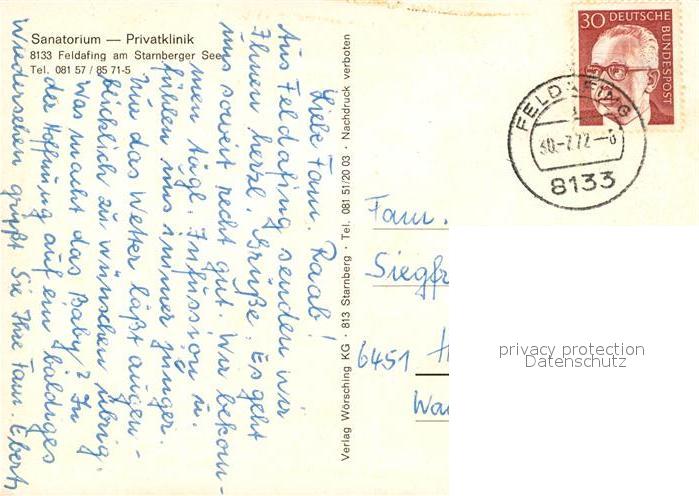 Sanatorium — Privatklinik
8133 Feldafing am Starnberger See
Tel. 081 57 / 85 71-5
Liebe Fam. Raab!
Aus Feldafing senden wir
Ihnen herzl. Grüße. Es geht
uns soweit recht gut. Wir bekom-
men tägl. Infussion u.
fühlen uns immer jünger.
Nur das Wetter läßt augen-
blicklich zu wünschen übrig.
Was macht das Baby? In
der Hoffnung auf ein baldiges
Wiedersehen grüßt Sie Ihre Fam. Ebert
Verlag Wörsching KG · 813 Starnberg · Tel. 081 51/20 03 · Nachdruck verboten
30 DEUTSCHE
BUNDESPOST
FELDAFING
30.-7.72-
8133
Fam.
Siegfr
6451 H
privacy protection
Datenschutz